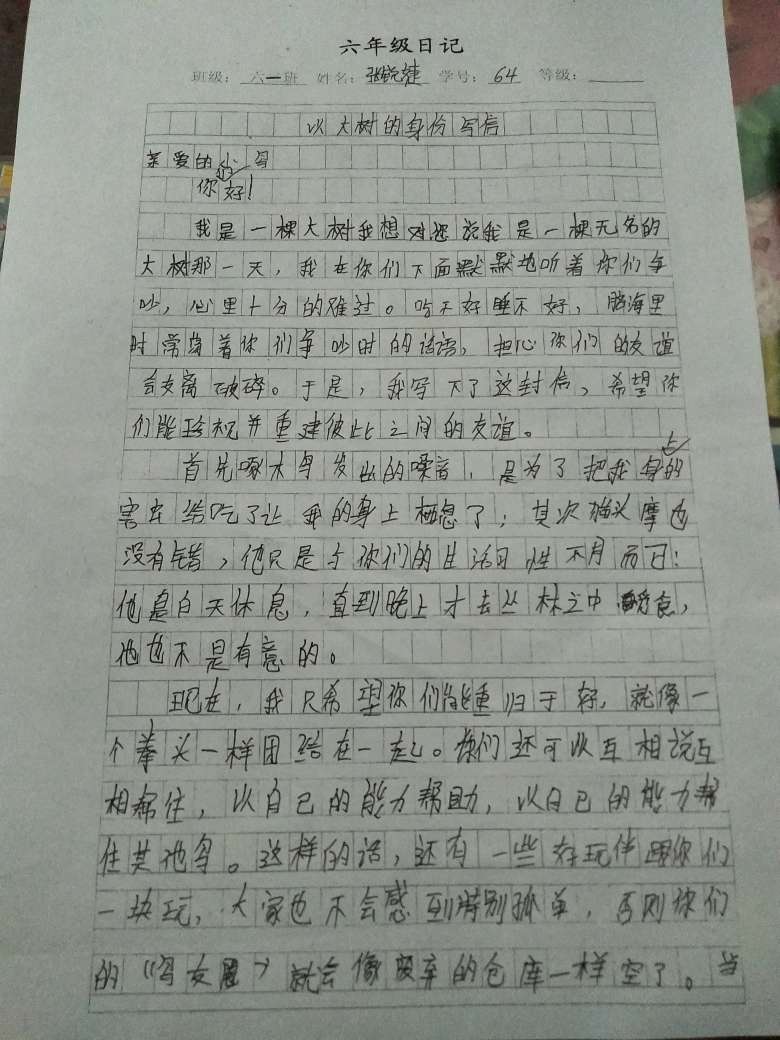 六年级日记
班级：六一班 姓名：张锐婕 学号：64 等级：
以大树的身份写信
亲爱的小鸟
们
你好！
我是一棵大树我想对您说我是一棵无名的
大树那一天，我在你们下面默默地听着你们争
吵，心里十分的难过。吃不好睡不好，脑海里
时常响着你们争吵时的话语，担心你们的友谊
会支离破碎。于是，我写下了这封信，希望你
们能珍视并重建彼此之间的友谊。
上
首先啄木鸟发出的噪音，是为了把我身的
害虫给吃了让我的身上栖息了；其次猫头摩也
没有错，他只是与你们的生活习性不同而已：
他是白天休息，直到晚上才去丛林之中食，
他也不是有意的。
现在，我只希望你们能重归于好，就像一
个拳头一样团结在一起。你们还可以互相说互
相帮住，以自己的能力帮助，以自己的能力帮
住其他鸟。这样的话，还有一些好玩伴跟你们
一块玩，大家也不会感到特别孤单，否则你们
的“鸟友圈”就会像废弃的仓库一样空了。当